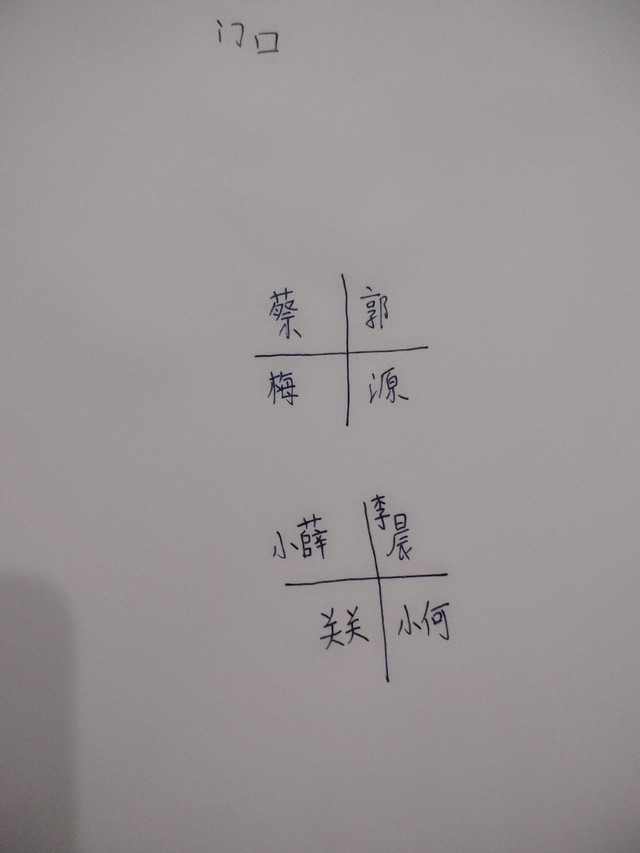 门口
蔡 郭
梅 源
小薛 李晨
关关 小何